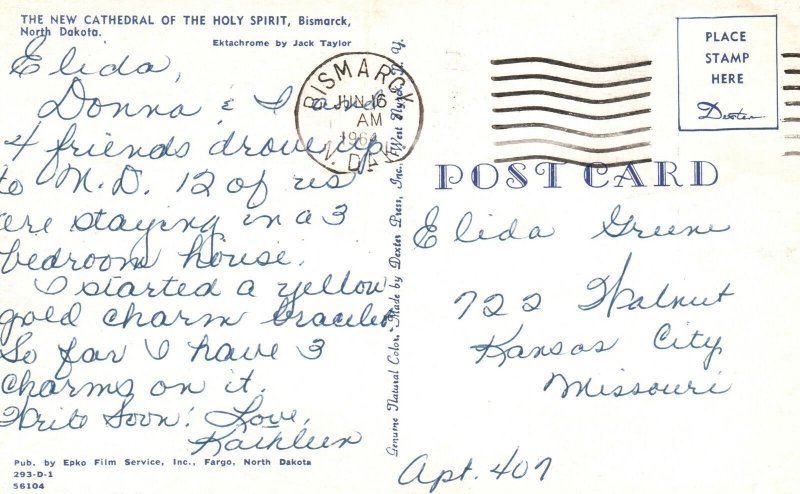 THE NEW CATHEDRAL OF THE HOLY SPIRIT, Bismarck,
North Dakota.
Ektachrome by Jack Taylor
Elida,
Donna & I and
4 friends drove up
to N.D. 12 of us
are staying in a 3
bedroom house.
I started a yellow
gold charm bracelet.
So far I have 3
charms on it.
Write Soon! Love,
Kathleen
Pub. by Epko Film Service, Inc., Fargo, North Dakota
293-D-1
56104
Genuine Natural Color, Made by Dexter Press, Inc., West Nyack, N. Y.
BISMARCK
JUN 16
AM
1964
N. DAK.
PLACE
STAMP
HERE
Dexter
POST CARD
Elida Greene
722 Walnut
Kansas City
Missouri
Apt. 407